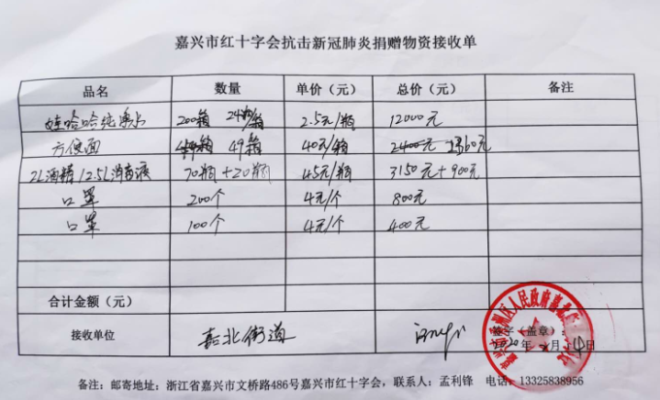 嘉兴市红十字会抗击新冠肺炎捐赠物资接收单
品名 数量 单价（元） 总价（元） 备注
娃哈哈纯净水 200箱 24瓶/箱 2.5元/瓶 12000元
方便面 49箱 40元/箱 2400元 1960元
2L酒精 12.5L消毒液 70瓶+20瓶 45元/瓶 3150元+900元
口罩 200个 4元/个 800元
口罩 100个 4元/个 400元
合计金额（元）
接收单位 嘉北街道 签字（盖章）：
2020年 月14日
备注：邮寄地址：浙江省嘉兴市文桥路486号嘉兴市红十字会，联系人：孟利锋 电话：13325838956